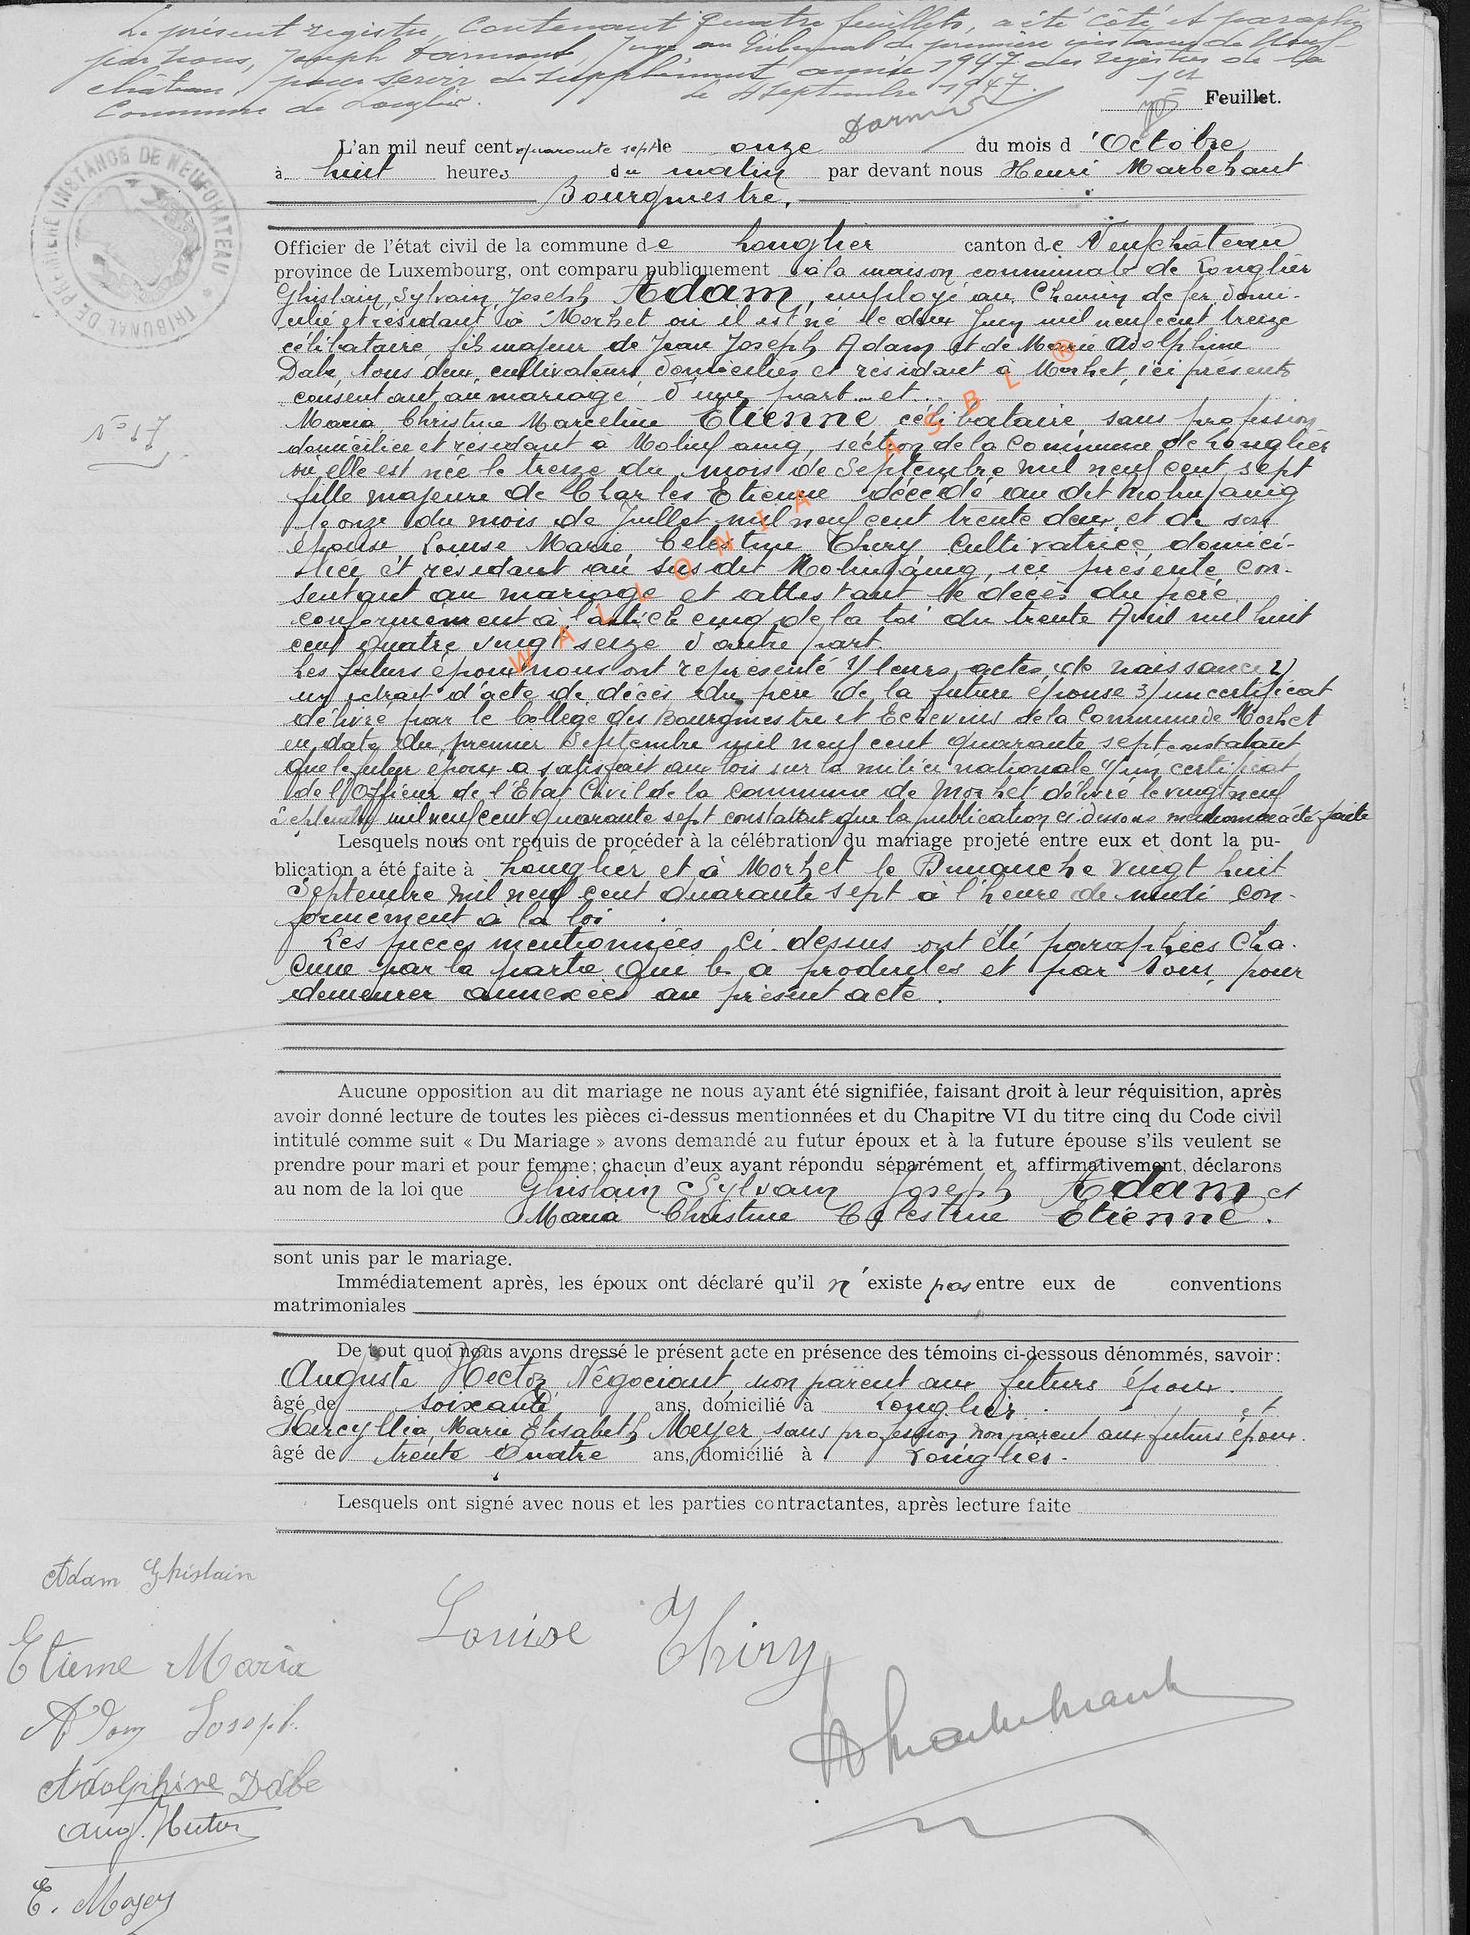 Le présent registre, contenant quatre feuillets, a été côté et paraphé
par nous, Joseph Juge au Tribunal de première instance de Neuf-
château, pour servir de supplément année 1947 des registres de la
Commune de Longlier. le 4 septembre 1947.
1er
Feuillet.
TRIBUNAL DE PREMIERE INSTANCE DE NEUFCHATEAU
L'an mil neuf cent quarante sept le onze du mois d'Octobre
à huit heures du matin par devant nous Henri Marbehant
Bourgmestre.
Officier de l'état civil de la commune de Longlier canton de Neufchâteau
province de Luxembourg, ont comparu publiquement à la maison communale de Longlier
Ghislain, Sylvain, Joseph Adam, employé au Chemin de fer, domi-
cilié et résidant à Morhet où il est né le deux Juin mil neuf cent treize
célibataire, fils majeur de Jean Joseph Adam et de Marie Adolphine
Dabe, tous deux cultivateurs, domiciliés et résidant à Morhet, ici présents
consentant au mariage d'une part et
N° 17
Maria Christine Marceline Etienne célibataire sans profession
domiciliée et résidant à Molinfaing, section de la Commune de Longlier
où elle est née le treize du mois de Septembre mil neuf cent sept
fille majeure de Charles Etienne décédé au dit Molinfaing
le onze du mois de Juillet mil neuf cent trente deux et de son
épouse, Louise Marie Celestine Thiry Cultivatrice, domici-
liée et résidant au susdit Molinfaing, ici présente con-
sentant au mariage et attestant le décès du père
conformément à l'article cinq de la loi du trente Avril mil huit
cent quatre vingt seize d'autre part.
Les futurs époux nous ont représenté 1/ leurs actes de naissance 2/
un extrait d'acte de décès du père de la future épouse 3/ un certificat
délivré par le Collège des Bourgmestre et Echevins de la Commune de Morhet
en date du premier Septembre mil neuf cent quarante sept constatant
que le futur époux a satisfait aux lois sur la milice nationale 4/ un certificat
de l'Officier de l'Etat Civil de la commune de Morhet délivré le vingt neuf
Septembre mil neuf cent quarante sept constatant que la publication ci dessous mentionnée a été faite
Lesquels nous ont requis de procéder à la célébration du mariage projeté entre eux et dont la pu-
blication a été faite à Longlier et à Morhet le Dimanche vingt huit
Septembre mil neuf cent quarante sept à l'heure de midi con-
formément à la loi
Les pièces mentionnées ci dessus ont été paraphées cha-
cune par la partie qui les a produites et par nous, pour
demeurer annexées au présent acte.
Aucune opposition au dit mariage ne nous ayant été signifiée, faisant droit à leur réquisition, après
avoir donné lecture de toutes les pièces ci-dessus mentionnées et du Chapitre VI du titre cinq du Code civil
intitulé comme suit « Du Mariage » avons demandé au futur époux et à la future épouse s'ils veulent se
prendre pour mari et pour femme; chacun d'eux ayant répondu séparément et affirmativement, déclarons
au nom de la loi que Ghislain Sylvain Joseph Adam et
Maria Christine Celestine Etienne.
sont unis par le mariage.
Immédiatement après, les époux ont déclaré qu'il n'existe pas entre eux de conventions
matrimoniales
De tout quoi nous avons dressé le présent acte en présence des témoins ci-dessous dénommés, savoir:
Auguste Hector, Négociant, non parent aux futurs époux
âgé de soixante ans, domicilié à Longlier. et
Marie Elisabeth Meyer, sans profession non parent aux futurs époux.
âgé de trente quatre ans, domicilié à Longlier.
Lesquels ont signé avec nous et les parties contractantes, après lecture faite
Adam Ghislain
Etienne Maria
Louise Thiry
Adam Joseph
HMarbehant
Adolphine Dabe
Aug. Hector
E. Meyer
WALLONIA ASBL ®